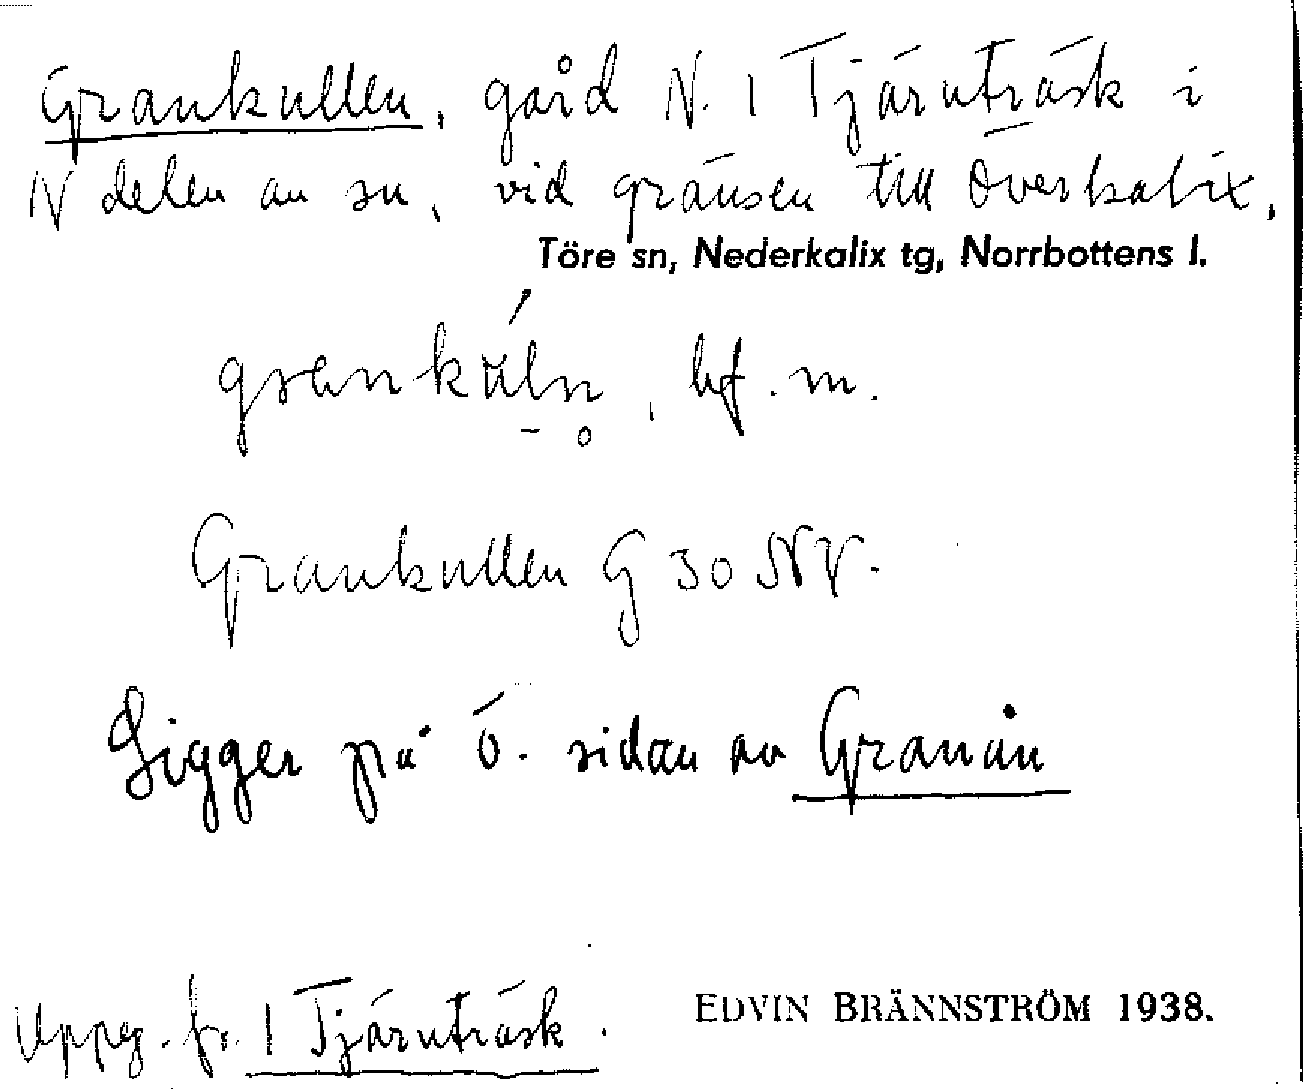 Grankullen, gård N. 1 Tjärnträsk i
N delen av sn, vid gränsen till Överkalix.
Töre sn, Nederkalix tg, Norrbottens l.
bf. m.
Grankullen G 30 NV.
Ligger på ö. sidan av Granån
Uppg. fr. 1 Tjärnträsk.
EDVIN BRÄNNSTRÖM 1938.